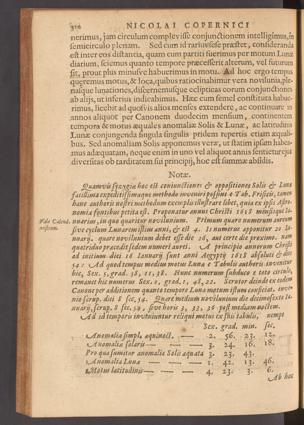 316 NICOLAI COPERNICI
nerimus, jam circulum complevisse conjunctionem intelligimus, in
semicirculo plenam. Sed cum id rariùs esse præstet, consideranda
est inter eos distantia, quam cum partiti fuerimus per motum Lunæ
diarium, sciemus quanto tempore præcesserit alterum, vel futurum
sit, prout plus minusve habuerimus in motu. Ad hoc ergo tempus
quæremus motus, & loca, quibus ratiocinabimur vera novilunia, ple-
naque lunationes, discernemusque eclipticas eorum conjunctiones
ab alijs, ut inferius indicabimus. Hæc cum semel constituta habue-
rimus, licebit ad quosvis alios menses extendere, ac continuare in
annos aliquot per Canonem duodecim mensium, continentem
tempora & motus æquales anomaliæ Solis & Lunæ, ac latitudinis
Lunæ conjungenda singula singulis pridem repertis etiam æquali-
bus. Sed anomaliam Solis apponemus veræ, ut statim ipsam habea-
mus adæquatam, neque enim in uno vel aliquot annis sentietur ejus
diversitas ob tarditatem sui principij, hoc est summæ absidis.
Notæ.
Quamvis syzygiæ hoc est conjunctiones & oppositiones Solis & Lunæ
facilima expeditissimaque methodo inveniri possint è Tab. Frisicis, tamen
hanc authoris nostri methodum exemplo illustrare libet, quia ex ipsis Astro-
nomiæ fontibus petita est. Proponatur annus Christi 1618 mensisque Ja-
nuarius, in quo quæritur novilunium. Primum quæro numerum aureum
sive cyclum Lunarem istius anni, & est 4. Is numerus apponitur
quare novilunium debet esse die 16, aut certe die proximo. nam
quatriduo præcedit sedem numeri aurei. A principio annorum Christi
ad initium diei 16 Januarij sunt anni Ægyptij 1618 absoluti & dies
Ad quod tempus medius motus Lunæ è Tabulis authoris invenitur
hic, Sex. 5, grad. 58, 11, 38. Hunc numerum subduco è toto circulo,
remanet hic numerus Sex. 0, grad. 1, 48, 22. Scrutor deinde ex eodem
Canone per additionem quanto tempore Luna motum istum conficiat, inve-
nio scrup. diei 8 sec. 54. Quare medium novilunium die decimosexto Ja-
nuarij, scrup. 8 sec. 54, sive horis 3, 33, 36 post mediam noctem.
Ad id temporis invenientur reliqui motus ex suis tabulis, nempe
Sex. grad. min. sec.
Anomalia simpl. æquinoct. — 2. 56. 23. 12.
Anomalia solaris — — — 3. 24. 16. 18.
Pro qua sumitur anomalia Solis æquata 3. 23. 43.
Anomalia Lunæ — — — 1. 42. 13. 46.
Motus latitudinis — — — 4. 23. 3. 6.
Ab hoc